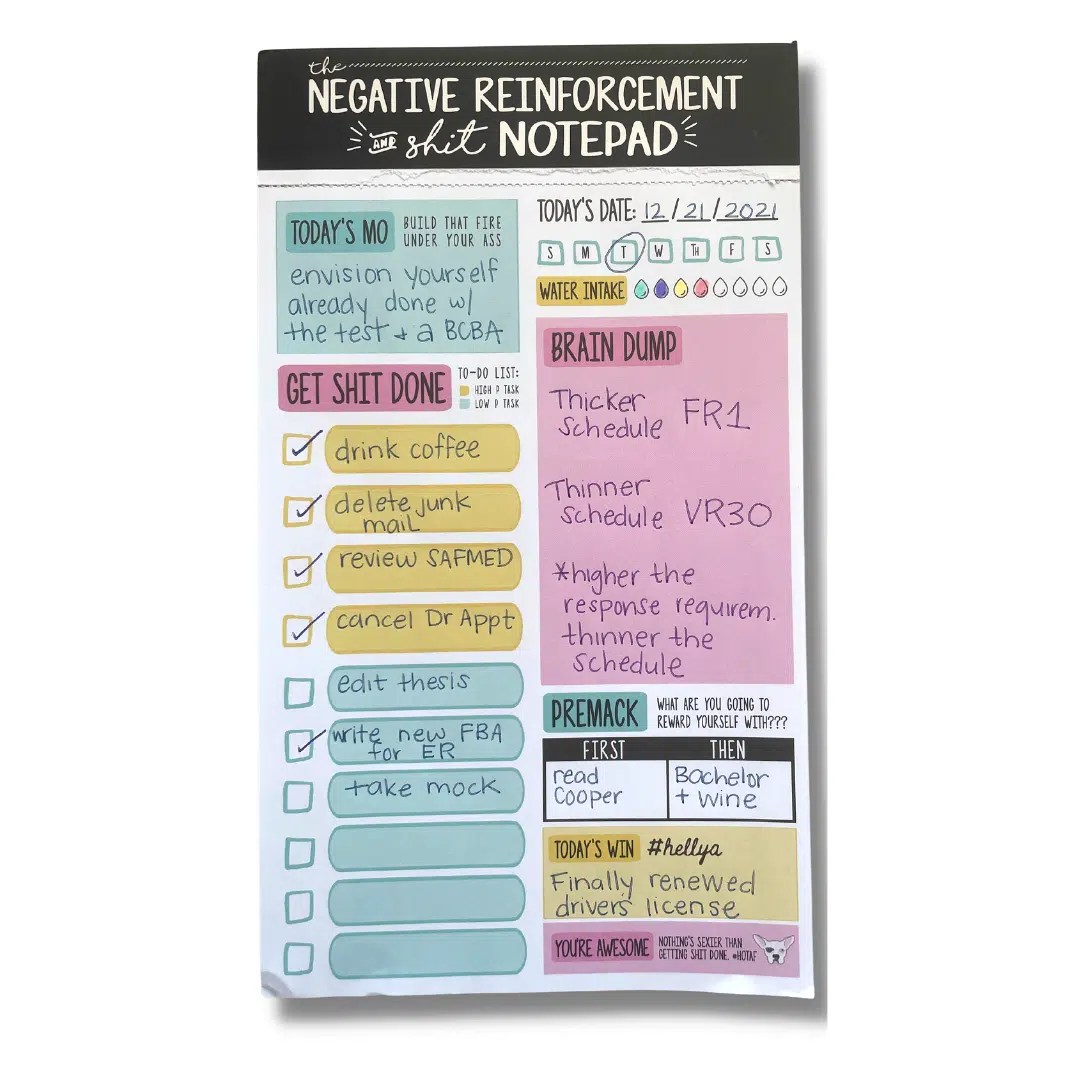 the
NEGATIVE REINFORCEMENT
AND shit NOTEPAD
TODAY'S MO
BUILD THAT FIRE
UNDER YOUR ASS
envision yourself
already done w/
the test + a BCBA
GET SHIT DONE
TO-DO LIST:
HIGH P TASK
LOW P TASK
drink coffee
delete junk
mail
review SAFMED
cancel Dr Appt
edit thesis
write new FBA
for ER
take mock
TODAY'S DATE: 12/21/2021
S M T W TH F S
WATER INTAKE
BRAIN DUMP
Thicker
Schedule FR1
Thinner
Schedule VR30
*higher the
response requirem.
thinner the
schedule
PREMACK
WHAT ARE YOU GOING TO
REWARD YOURSELF WITH???
FIRST THEN
read
Cooper
Bachelor
+ Wine
TODAY'S WIN #hellya
Finally renewed
drivers' license
YOU'RE AWESOME
NOTHING'S SEXIER THAN
GETTING SHIT DONE. #HOTAF